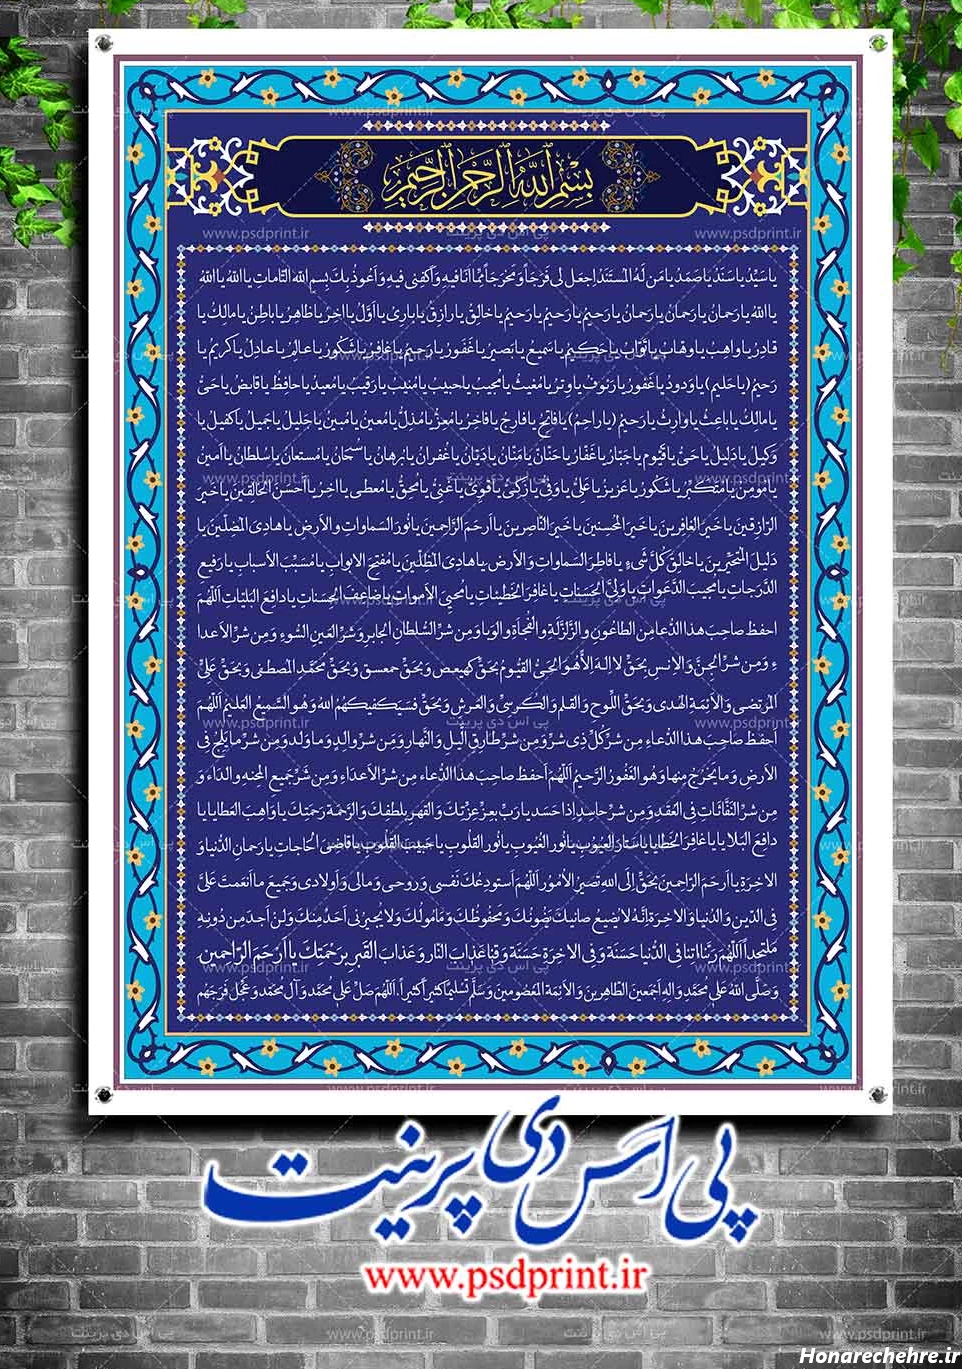 بِسْمِ اللهِ الرَّحْمنِ الرَّحيم
يا سَيِّدُ يا سَنَدُ يا صَمَدُ يا مَن لَهُ المُستَنَدُ اِجعَل لي فَرَجاً وَ مَخرَجاً مِمّا اَنَا فيهِ وَ اَكفِني فيهِ وَ اَعُوذُ بِكَ بِسمِ اللهِ التّامّاتِ يا اللهُ يا اللهُ
يا اللهُ يا رَحمانُ يا رَحمانُ يا رَحمانُ يا رَحيمُ يا رَحيمُ يا رَحيمُ يا خالِقُ يا رازِقُ يا بارِئُ يا اَوَّلُ يا اخِرُ يا ظاهِرُ يا باطِنُ يا مالِكُ يا
قادِرُ يا واهِبُ يا وَهّابُ يا تَوّابُ يا حَكيمُ يا سَميعُ يا بَصيرُ يا غَفُورُ يا رَحيمُ يا غافِرُ يا شَكُورُ يا عالِمُ يا عادِلُ يا كَريمُ يا
رَحيمُ (يا حَليمُ) يا وَدُودُ يا غَفُورُ يا رَئوفُ يا وِترُ يا مُغيثُ يا مُجيبُ يا حَبيبُ يا مُنيبُ يا رَقيبُ يا مَعبدُ يا حافِظُ يا قابِضُ يا حَيُّ
يا مالِكُ يا باعِثُ يا وارِثُ يا رَحيمُ (يا راحِمُ) يا فاتِحُ يا فارِجُ يا فاخِرُ يا مُعِزُّ يا مُذِلُّ يا مُعينُ يا مُبينُ يا جَليلُ يا جَميلُ يا كَفيلُ يا
وَكيلُ يا دَليلُ يا حَيُّ يا قَيُّومُ يا جَبّارُ يا غَفّارُ يا حَنّانُ يا مَنّانُ يا دَيّانُ يا غُفرانُ يا بُرهانُ يا سُبحانُ يا مُستَعانُ يا سُلطانُ يا اَمينُ
يا مُومِنُ يا مُتَكَبِّرُ يا شَكُورُ يا عَزيزُ يا عَلِيُّ يا وَفِيُّ يا زَكِيُّ يا قَوِيُّ يا غَنِيُّ يا مُحِقُّ يا مُعطي يا اخِرُ يا اَحسَنَ الخالِقينَ يا خَيرَ
الرّازِقينَ يا خَيرَ الغافِرينَ يا خَيرَ المُحسِنينَ يا خَيرَ النّاصِرينَ يا اَرحَمَ الرّاحِمينَ يا نُورَ السَّماواتِ وَالاَرضِ يا هادِيَ المُضِلّينَ يا
دَليلَ المُتَحَيِّرينَ يا خالِقَ كُلِّ شَيءٍ يا فاطِرَ السَّماواتِ وَ الاَرضِ يا هادِيَ المُظِلّينَ يا مُفَتِّحَ الاَبوابِ يا مُسَبِّبَ الاَسبابِ يا رَفيعَ
الدَّرَجاتِ يا مُجيبَ الدَّعَواتِ يا وَلِيَّ الحَسَناتِ يا غافِرَ الخَطيئاتِ يا مُحيِيَ الاَمواتِ يا ضاعِفَ الحَسَناتِ يا دافِعَ البَلِيّاتِ اَللّهُمَّ
احفَظ صاحِبَ هذَا الدُّعا مِنَ الطّاعُونِ وَ الزَّلزَلَةِ وَ الفُجأَةِ وَ الوَبا وَ مِن شَرِّ السُّلطانِ الجابِرِ وَ شَرِّ العَينِ السُّوءِ وَ مِن شَرِّ الاَعدا
ءِ وَ مِن شَرِّ الجِنِّ وَ الاِنسِ بِحَقِّ لا اِلهَ اِلّا هُوَ الحَيُّ القَيُّومُ بِحَقِّ كهيعص وَ بِحَقِّ حمعسق وَ بِحَقِّ مُحَمَّدٍ المُصطَفى وَ بِحَقِّ عَلِيٍّ
المُرتَضى وَ الاَئِمَّةِ الهُدى وَ بِحَقِّ اللَّوحِ وَ القَلَمِ وَ الكُرسِيِّ وَ العَرشِ وَ بِحَقِّ فَسَيَكفيكَهُمُ اللهُ وَ هُوَ السَّميعُ العَليمُ اَللّهُمَّ
اَحفَظ صاحِبَ هذَا الدُّعاءِ مِن شَرِّ كُلِّ ذي شَرٍّ وَ مِن شَرِّ طارِقِ اللَّيلِ وَ النَّهارِ وَ مِن شَرِّ والِدٍ وَ ما وَلَدَ وَ مِن شَرِّ ما يَلِجُ فِي
الاَرضِ وَ ما يَخرُجُ مِنها وَ هُوَ الغَفُورُ الرَّحيمُ اَللّهُمَّ اَحفَظ صاحِبَ هذَا الدُّعاءِ مِن شَرِّ الاَعداءِ وَ مِن شَرِّ جَميعِ المِحنَةِ وَالدّاءِ وَ
مِن شَرِّ النَّفّاثاتِ فِي العُقَدِ وَ مِن شَرِّ حاسِدٍ اِذا حَسَدَ يا رَبِّ بِعِزِّ عِزَّتِكَ وَ القَهرِ بِلُطفِكَ وَ الرَّحمَةِ رَحمَتِكَ يا واهِبَ العَطايا يا
دافِعَ البَلايا يا غافِرَ الخَطايا يا سَتّارَ العُيُوبِ يا نُورَ الغُيُوبِ يا نُورَ القُلُوبِ يا حَبيبَ القُلُوبِ يا قاضِيَ الحاجاتِ يا رَحمانَ الدُّنيا وَ
الاخِرَةِ يا اَرحَمَ الرّاحِمينَ بِحَقِّ اِلَى اللهِ تَصيرُ الاُمُورُ اَللّهُمَّ اَستَودِعُكَ نَفسي وَ رُوحي وَ مالي وَ اَولادي وَ جَميعَ ما اَنعَمتَ عَلَيَّ
فِي الدّينِ وَ الدُّنيا وَ الاخِرَةِ اِنَّهُ لا يُضيعُ صانيكَ يَصُونُكَ وَ مَحفُوظُكَ وَ مَامُولُكَ وَ لا يُجيرُني اَحَدٌ مِنكَ وَ لَن اَجِدَ مِن دُونِهِ
مُلتَحَداً اَللّهُمَّ رَبَّنا اتِنا فِي الدُّنيا حَسَنَةً وَ فِي الاخِرَةِ حَسَنَةً وَ قِنا عَذابَ النّارِ وَ عَذابَ القَبرِ بِرَحمَتِكَ يا اَرحَمَ الرّاحِمينَ
وَ صَلَّى اللهُ عَلى مُحَمَّدٍ وَ الِهِ اَجمَعينَ الطّاهِرينَ وَ الاَئِمَّةِ المَعصُومينَ وَ سَلَّمَ تَسليماً كَثيراً كَثيراً. اَللّهُمَّ صَلِّ عَلى مُحَمَّدٍ وَ آلِ مُحَمَّدٍ وَ عَجِّل فَرَجَهُم
پی اس دی پرینت
www.psdprint.ir
Honarechehre.ir